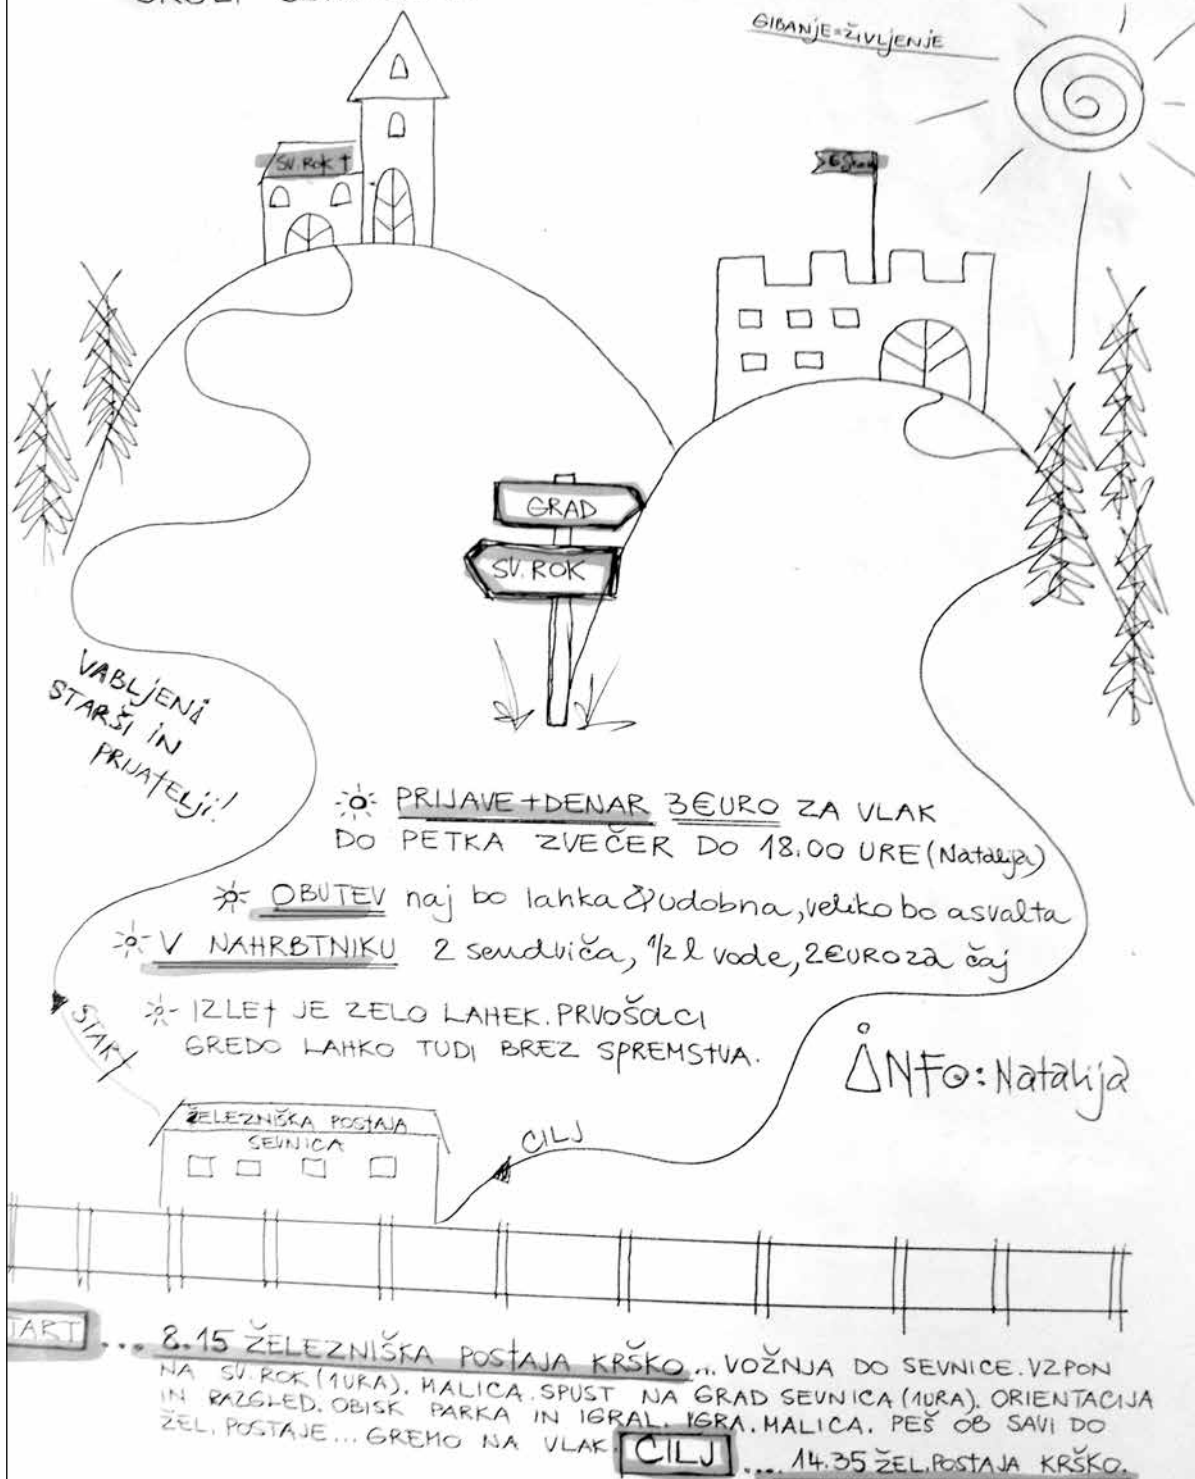 GIBANJE=ŽIVLJENJE
SV. ROK †
GRAD
SV. ROK
VABLJENI
STARŠI IN
PRIJATELJI!
PRIJAVE+DENAR 3€URO ZA VLAK
DO PETKA ZVEČER DO 18.00 URE (Natalija)
OBUTEV naj bo lahka & udobna, veliko bo asvalta
V NAHRBTNIKU 2 sendviča, 1/2 l vode, 2€URO za čaj
IZLET JE ZELO LAHEK. PRVOŠOLCI
GREDO LAHKO TUDI BREZ SPREMSTVA.
START
INFO: Natalija
ŽELEZNIŠKA POSTAJA
SEVNICA
CILJ
TART ... 8.15 ŽELEZNIŠKA POSTAJA KRŠKO... VOŽNJA DO SEVNICE. VZPON
NA SV. ROK (1URA). MALICA. SPUST NA GRAD SEVNICA (1URA). ORIENTACIJA
IN RAZGLED. OBISK PARKA IN IGRAL. IGRA. MALICA. PEŠ OB SAVI DO
ŽEL. POSTAJE... GREMO NA VLAK. CILJ .... 14.35 ŽEL. POSTAJA KRŠKO.